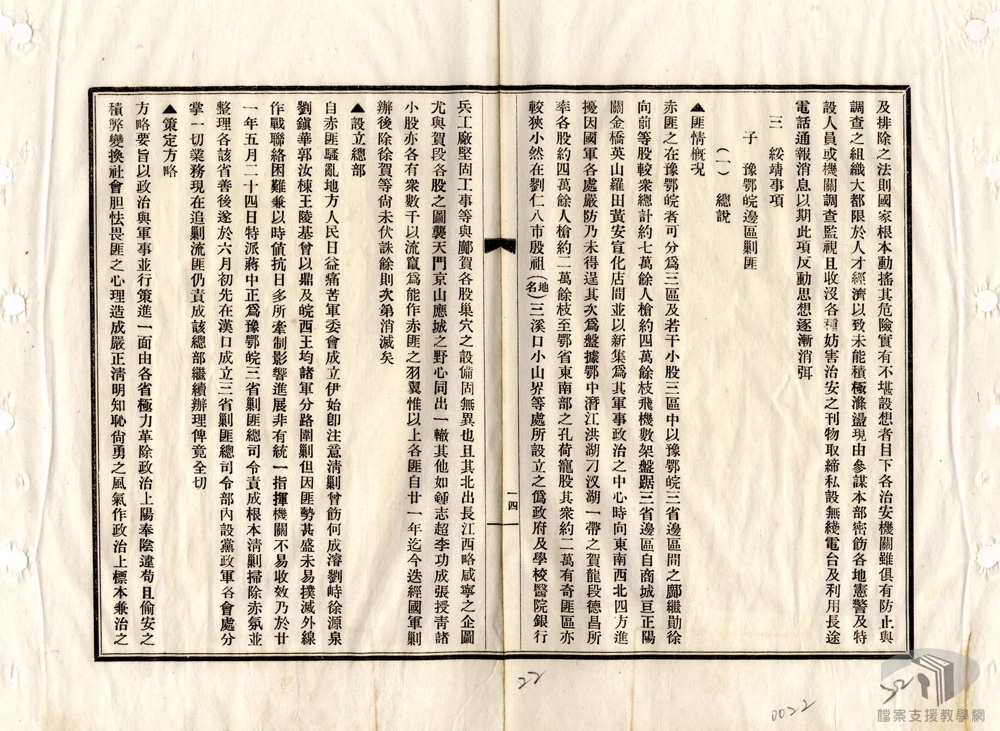 及排除之法則國家根本動搖其危險實有不堪設想者目下各治安機關雖俱有防止與
調查之組織大都限於人才經濟以致未能積極滌盪現由參謀本部密飭各地憲警及特
設人員或機關調查監視且收沒各種妨害治安之刊物取締私設無綫電台及利用長途
電話通報消息以期此項反動思想逐漸消弭
三　綏靖事項
子　豫鄂皖邊區剿匪
（一）　總說
▲匪情概况
赤匪之在豫鄂皖者可分爲三區及若干小股三區中以豫鄂皖三省邊區間之鄺繼勛徐
向前等股較衆總計約七萬餘人槍約四萬餘枝飛機數架盤踞三省邊區自商城亘正陽
關金橋英山羅田黃安宣化店間並以新集爲其軍事政治之中心時向東南西北四方進
擾因國軍各處嚴防乃未得逞其次爲盤據鄂中潛江洪湖刁汊湖一帶之賀龍段德昌所
率各股約四萬餘人槍約二萬餘枝至鄂省東南部之孔荷寵股其衆約二萬有奇匪區亦
較狹小然在劉仁八市殷祖（地名）三溪口小山界等處所設立之僞政府及學校醫院銀行
一四
兵工廠堅固工事等與鄺賀各股巢穴之設備固無異也且其北出長江西略咸寧之企圖
尤與賀段各股之圖襲天門京山應城之野心同出一轍其他如鍾志超李功成張授靑諸
小股亦各有衆數千以流竄爲能作赤匪之羽翼惟以上各匪自廿一年迄今迭經國軍剿
辦後除徐賀等尙未伏誅餘則次第消滅矣
▲設立總部
自赤匪騷亂地方人民日益痛苦軍委會成立伊始卽注意淸剿曾飭何成濬劉峙徐源泉
劉鎭華郭汝棟王陵基曾以鼎及皖西王均諸軍分路圍剿但因匪勢甚盛未易撲滅外線
作戰聯絡困難兼以時値抗日多所牽制影響進展非有統一指揮機關不易收效乃於廿
一年五月二十四日特派蔣中正爲豫鄂皖三省剿匪總司令責成根本淸剿掃除赤氛並
整理各該省善後遂於六月初先在漢口成立三省剿匪總司令部內設黨政軍各會處分
掌一切業務現在追剿流匪仍責成該總部繼續辦理俾竟全切
▲策定方略
方略要旨以政治與軍事並行策進一面由各省極力革除政治上陽奉陰違苟且偷安之
積弊變換社會胆怯畏匪之心理造成嚴正淸明知恥尙勇之風氣作政治上標本兼治之
22
0022
檔案支援教學網